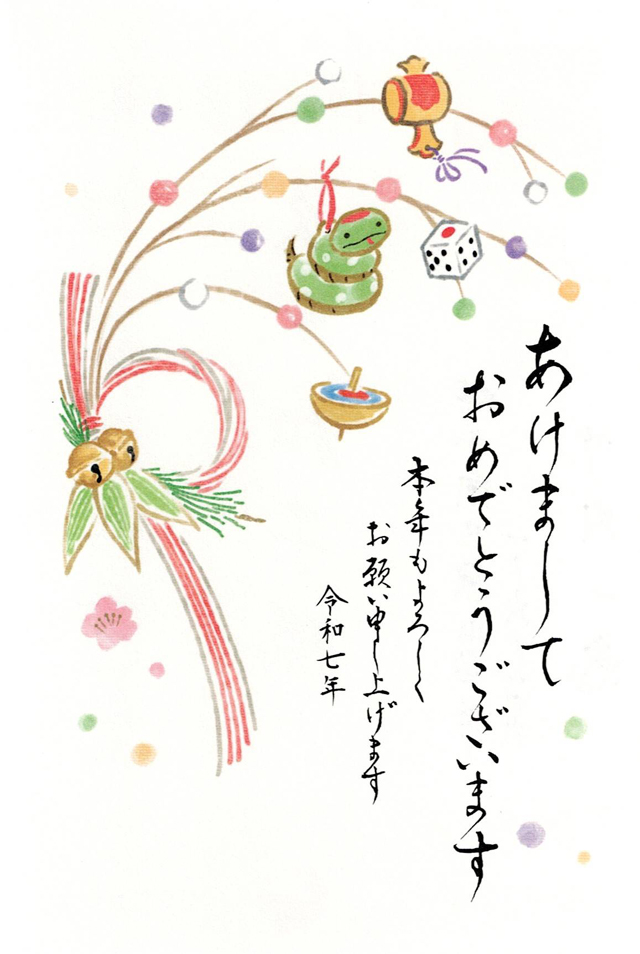 あけまして
おめでとうございます
本年もよろしく
お願い申し上げます
令和七年